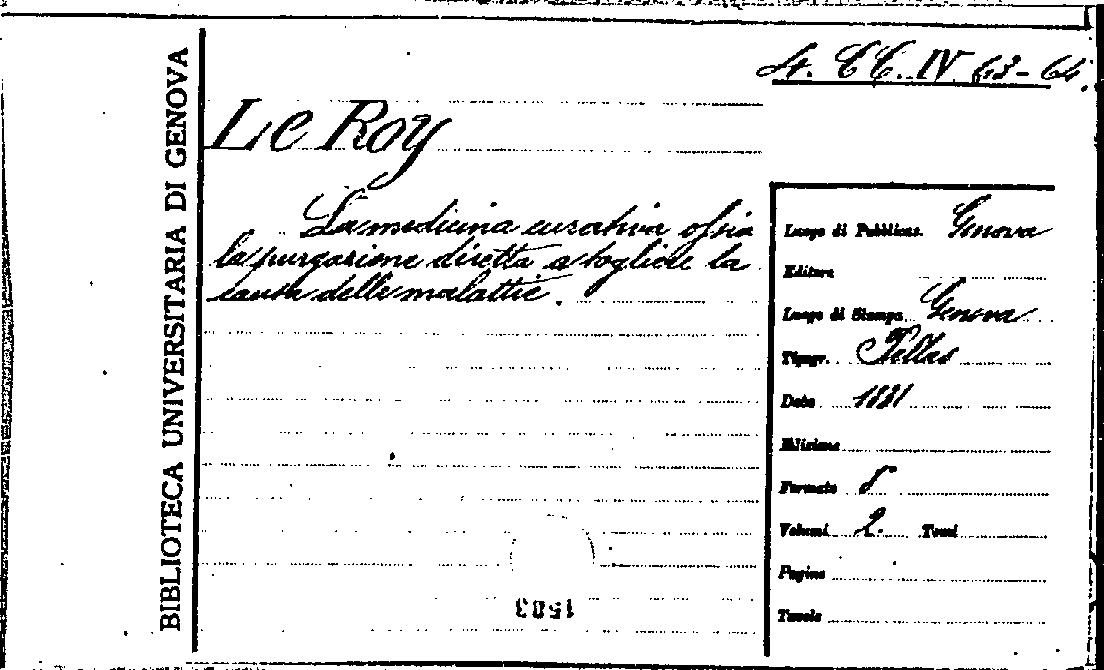 BIBLIOTECA UNIVERSITARIA DI GENOVA
4. CC. IV 63-64.
Le Roy
La medicina curativa ossia
la purgazione diretta a togliere la
causa delle malattie.
Luogo di Pubblicaz. Genova
Editore
Luogo di Stampa Genova
Tipogr. Pellas
Data 18
Edizione
Formato 8
Volumi 2. Tomi
Pagine
Tavole
1503